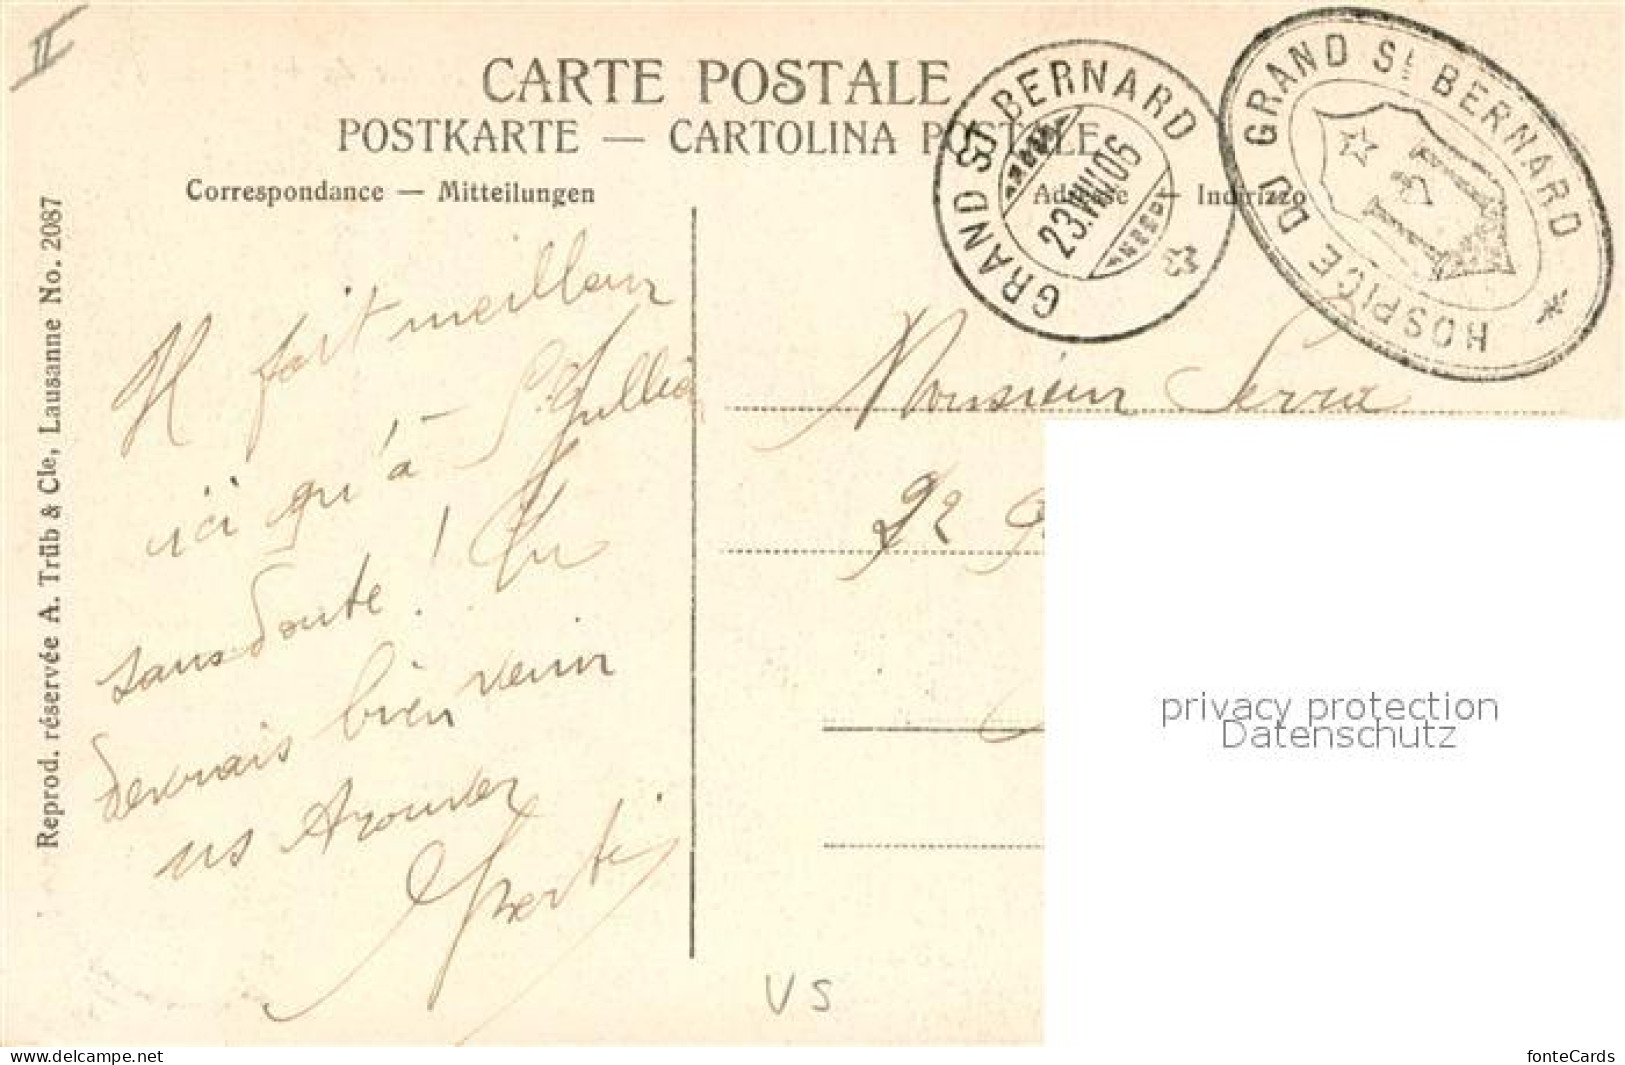 II
CARTE POSTALE
POSTKARTE — CARTOLINA POSTALE
Correspondance — Mitteilungen
Adresse — Indirizzo
GRAND ST BERNARD
23.VIII.06
HOSPICE DU GRAND St BERNARD
Reprod. réservée A. Trüb & Cie, Lausanne No. 2087
Il fait meilleur
ici qu'à St Jullien
sans doute ! Tu
devrais bien venir
ns trouver
Monsieur Serra
22
VS
privacy protection
Datenschutz
www.delcampe.net
fonteCards